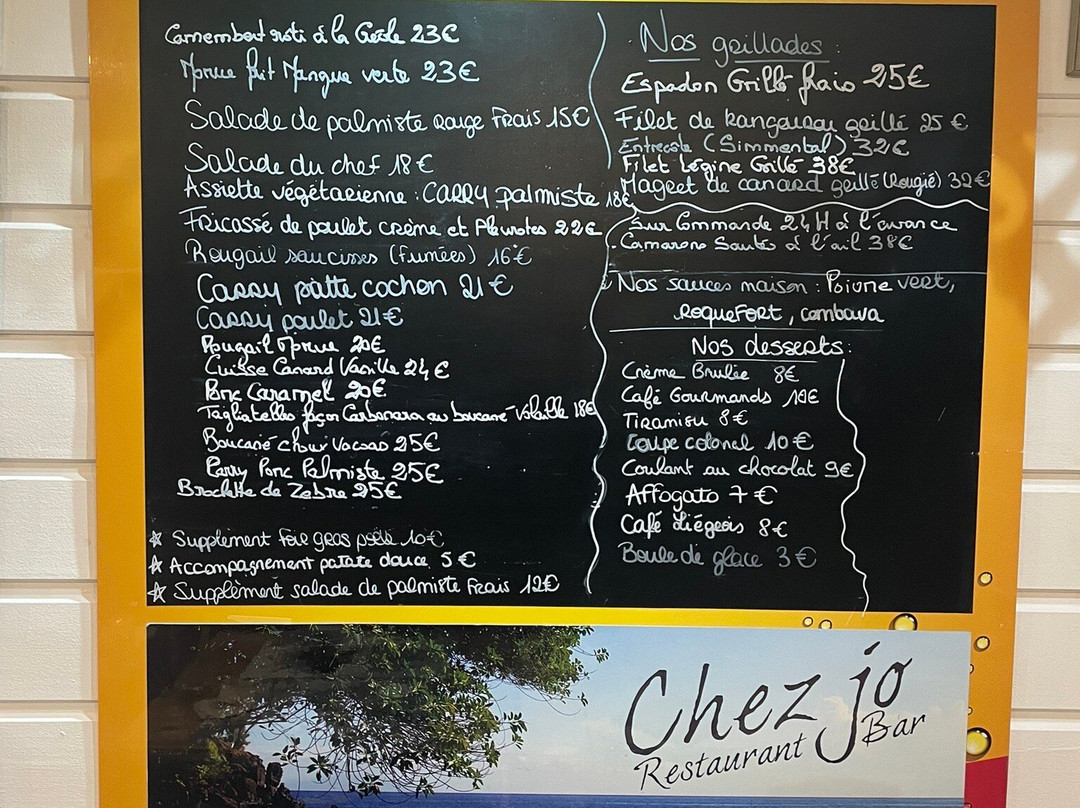 Camembert roti à la Geole 23€
Morue frit Mangue verte 23€
Salade de palmiste Rouge Frais 15€
Salade du chef 18€
Assiette végétarienne : CARRY palmiste 18€
Fricassé de poulet crème et Pleurotes 22€
Rougail saucisses (fumées) 16€
Carry patte cochon 21€
Carry poulet 21€
Rougail Morue 20€
Cuisse Canard Vanille 24€
Porc Caramel 20€
Tagliatelles façon Carbonara au boucané Volaille 18€
Boucané chou Vacoas 25€
Carry Porc Palmiste 25€
Brochette de Zebre 25€
☆ Supplément foie gras poêlé 10€
☆ Accompagnement patate douce 5€
☆ Supplèment salade de palmiste Frais 12€
Nos grillades :
Espadon Grillé frais 25€
Filet de kangourou grillé 25€
Entrecote (Simmental) 32€
Filet Légine Grillé 38€
Magret de canard grillé (Rougié) 32€
Sur Commande 24H à l'avance
- Camarons Sautés à l'ail 38€
Nos sauces maison : Poivre vert,
Roquefort, combava
Nos desserts :
Crème Brulée 8€
Café Gourmands 10€
Tiramisu 8€
Coupe colonel 10€
Coulant au chocolat 9€
Affogato 7€
Café Liégeois 8€
Boule de glace 3€
Chez jo
Restaurant Bar